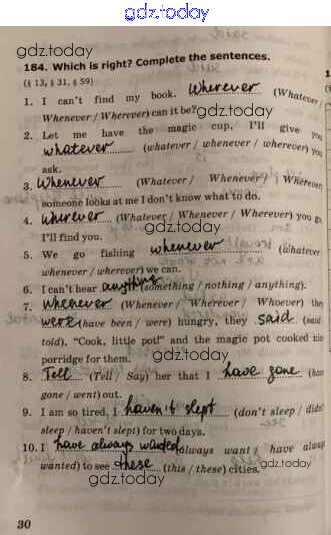 gdz.today
gdz.today
184. Which is right? Complete the sentences.
(§ 13, § 31, § 59)
1. I can't find my book. Wherever (Whatever /
Whenever / Wherever) can it be?
gdz.today
2. Let me have the magic cup, I'll give you
whatever (whatever / whenever / wherever) you
ask.
3. Whenever (Whatever / Whenever / Wherever)
someone looks at me I don't know what to do.
4. Wherever (Whatever / Whenever / Wherever) you go
gdz.today
I'll find you.
5. We go fishing whenever (whatever
whenever / wherever) we can.
6. I can't hear anything (something / nothing / anything).
gdz.today
7. Whenever (Whenever / Wherever / Whoever) they
were (have been / were) hungry, they said (said
told), "Cook, little pot!" and the magic pot cooked
porridge for them.
gdz.today
8. Tell (Tell / Say) her that I have gone (have
gone / went) out.
9. I am so tired, I haven't slept (don't sleep / didn't
sleep / haven't slept) for two days.
10. I have always wanted (always want / have always
wanted) to see these (this / these) cities.
gdz.today
gdz.today
30
gdz.today